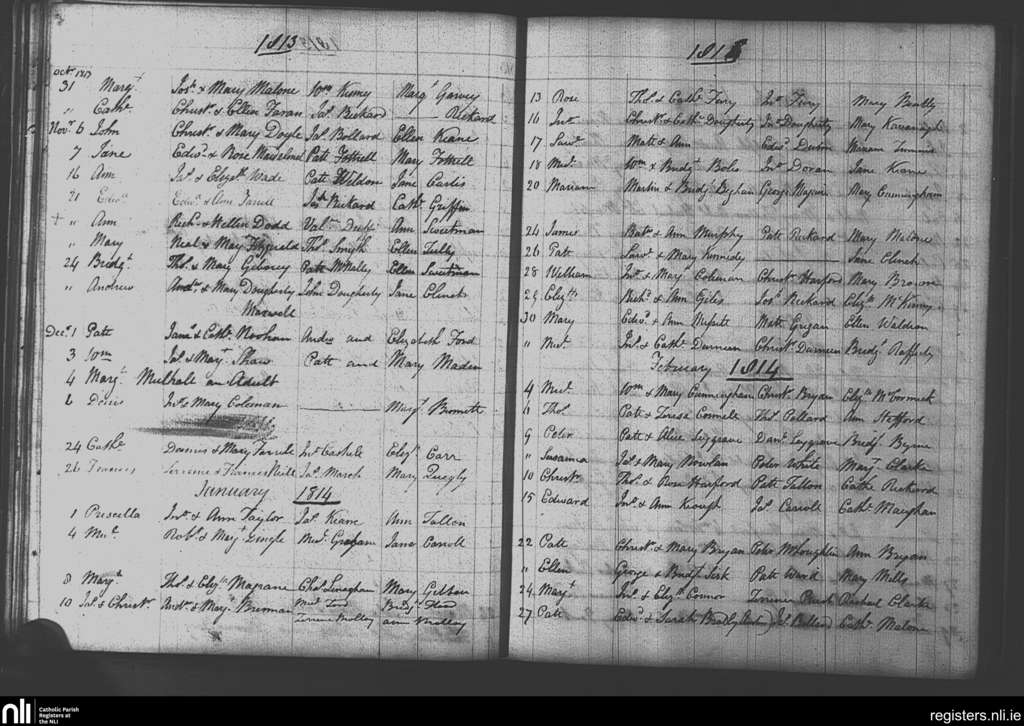 1813
Octr 1813
31 Margt Jos. & Mary Malone Wm Kenny Margt Garvey
" Cathe Christr & Ellen Faran Jas. Rickard Rickard
Novr 6 John Christr & Mary Doyle Jas. Bollard Ellen Keane
7 Jane Edwd & Rose Patt Fottrell Mary Fottrell
16 Ann Jas. & Elizth Wade Patt Weldon Jane Curtis
21 Edwd Edwd & Ann Farrell Jas. Rickard Cathe Griffin
+ " Ann Richd & Hellen Dodd Valn Ann Sweetman
" Mary Neal & Mary Fitzgerald Thos. Smyth Ellen Tully
24 Bridgt Thos. & Mary Patt McNalley Ellen Sweetman
" Andrew Andw & Mary Dougherty John Dougherty Jane Clinch
Maxwell
Decr 1 Patt James & Cathe Andw and Elizabeth Ford
3 Wm Jas. & Margt Shaw Patt and Mary Maden
4 Margt Mulhall an Adult
6 Denis Jno. & Mary Coleman Margt
24 Cathe Dennis & Mary Farrele Jno. Elizth Carr
26 Frances Terrence & Frances Neill Jas. March Mary Quigly
January 1814
1 Priscella Jno. & Ann Taylor Jas. Keane Ann Fallon
4 Robt & Margt Lingle Michl Graham Jane Carroll
8 Margt Thos. & Elizth Magrane Chas. Linagham Mary Gibbon
10 Jas. & Christr Andw & Margt Brennan Michl Ford Bridgt
Terrence Molloy Ann Molloy
1814
13 Rose Thos. & Cathe Fury Jno. Fury Mary Bently
16 Jno. Christr & Cathe Dougherty Jno. Dougherty Mary Kavanagh
17 Lawe Matt & Ann Edwd Mariam
18 Michl Wm & Bridgt Bolis Jno. Doran Jane Keane
20 Mariam Martin & Bridgt George Maguire Mary Cunningham
24 James Batw & Ann Murphy Patt Rickard Mary Malone
26 Patt Lawe & Mary Kennedy Jane Clinch
28 William Jno. & Margt Coleman Christr Harford Mary Browne
29 Elizth Richd & Ann Giles Jos. Rickard Elizth McKenny
30 Mary Edwd & Ann Matt Ellen Waldron
" Michl Jno. & Cathe Durneen Christr Durneen Bridgt Rafferty
February 1814
4 Michl Wm & Mary Cunningham Christr Bryan Elizth McCormick
6 Thos. Patt & Teresa Connell Thos. Pollard Ann Stafford
9 Peter Patt & Alice Segrave Danl Segrave Bridgt Byrne
" Susanna Jas. & Mary Nowlan Peter White Margt Clarke
10 Christr Thos. & Rose Harford Patt Fallon Cathe Rickard
15 Edward Jno. & Ann Keough Jas. Carroll Cathe Maughan
22 Patt Christr & Mary Bryan Peter McLoughlin Ann Bryan
" Ellen George & Bridgt Patt Ward Mary Mills
24 Margt Jno. & Elizth Connor Terence Rachael Clarke
27 Patt Edwd & Sarah Jas. Bollard Cathe Malone
nli
Catholic Parish
Registers at
the NLI
registers.nli.ie